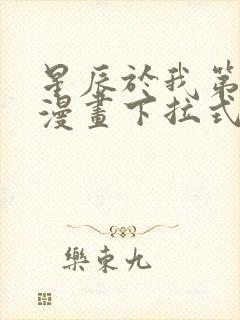 星辰於我第
漫畫下拉式
樂東九